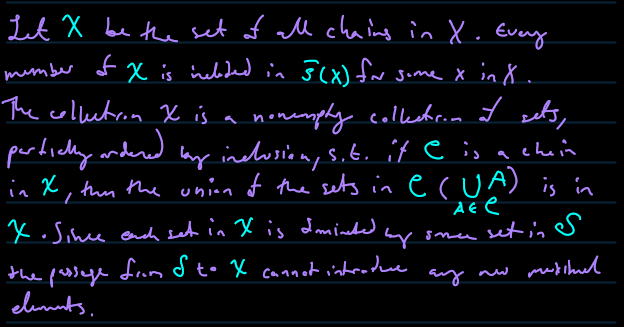 Let 𝒳 be the set of all chains in X. Every
member of 𝒳 is included in s̄(x) for some x in X.
The collection 𝒳 is a nonempty collection of sets,
partially ordered by inclusion, s.t. if 𝒞 is a chain
in 𝒳, then the union of the sets in 𝒞 (⋃_{A∈𝒞} A) is in
𝒳. Since each set in 𝒳 is dominated by some set in 𝒮
the passage from 𝒮 to 𝒳 cannot introduce any new maximal
elements.